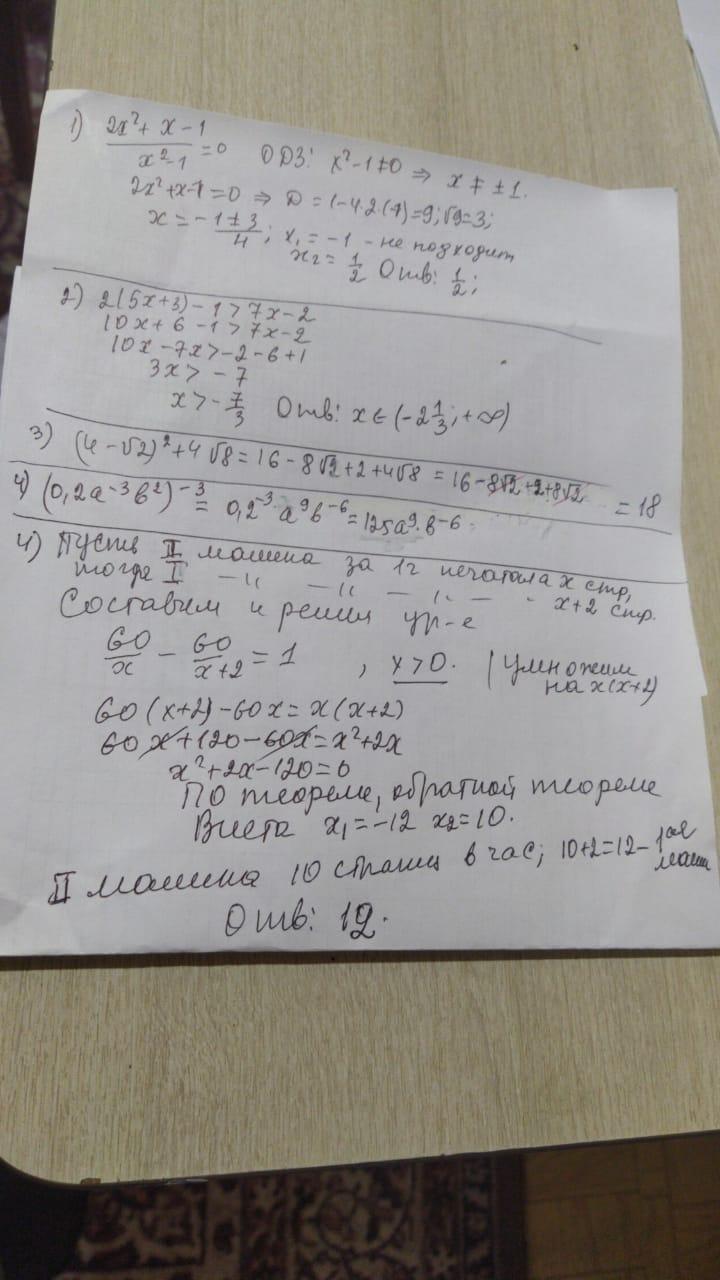 1) (2x²+x-1)/(x²-1) =0 ОДЗ: x²-1≠0 ⇒ x ≠ ±1.
2x²+x-1=0 ⇒ D = 1-4·2·(-1)=9; √9=3;
x = (-1±3)/4; x₁ = -1 - не подходит
x₂ = 1/2 Отв: 1/2;
2) 2(5x+3)-1>7x-2
10x+6-1>7x-2
10x-7x>-2-6+1
3x>-7
x>-7/3 Отв: x∈(-2 1/3; +∞)
3) (4-√2)²+4√8=16-8√2+2+4√8=16-8√2+2+8√2=18
4) (0,2a⁻³b²)⁻³=0,2⁻³·a⁹b⁻⁶=125a⁹·b⁻⁶
4) Пусть II машина за 1г печатала x стр,
тогда I -"- -"- -"- - x+2 стр.
Составим и решим ур-е
60/x - 60/(x+2) = 1 , x>0. | Умножим
на x(x+2)
60(x+2)-60x=x(x+2)
60x+120-60x=x²+2x
x²+2x-120=0
По теореме, обратной теореме
Виета x₁=-12 x₂=10.
II машина 10 страниц в час; 10+2=12- 1ая
маш
Отв: 12.